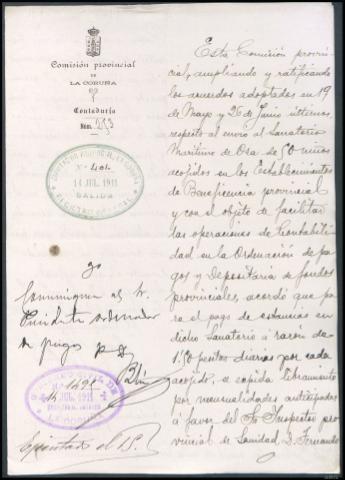 Comisión provincial
DE
LA CORUÑA
Contaduría
Núm. 253
DIPUTACIÓN PROVINCIAL DE LA CORUÑA
Nº 401
14 JUL. 1911
SALIDA
Comuníquese al Sr.
Presidente ordenador
de pagos
GOBIERNO CIVIL DE
Nº 1492
JUL. 1911
LA CORUÑA
Esta Comisión provin-
cial, ampliando y ratificando
los acuerdos adoptados en 19
de Mayo y 26 de Junio últimos,
respecto al envío al Sanatorio
Marítimo de Oza de 50 niños
acojidos en los Establecimientos
de Beneficencia provincial
y con el objeto de facilitar
las operaciones de Contabili-
dad en la Ordenación de pa-
gos y Depositaría de fondos
provinciales, acordó que pa-
ra el pago de estancias en
dicho Sanatorio á razón de
1'50 pesetas diarias por cada
acojido, se expida libramiento
por mensualidades anticipadas
á favor del Sr. Inspector pro-
vincial de Sanidad D. Fernando